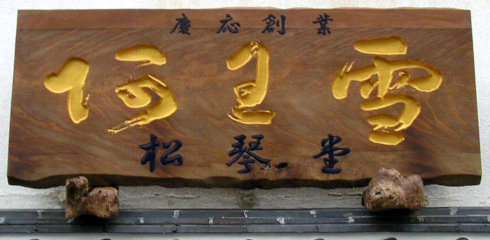 慶応創業
阿わ雪
松琴堂